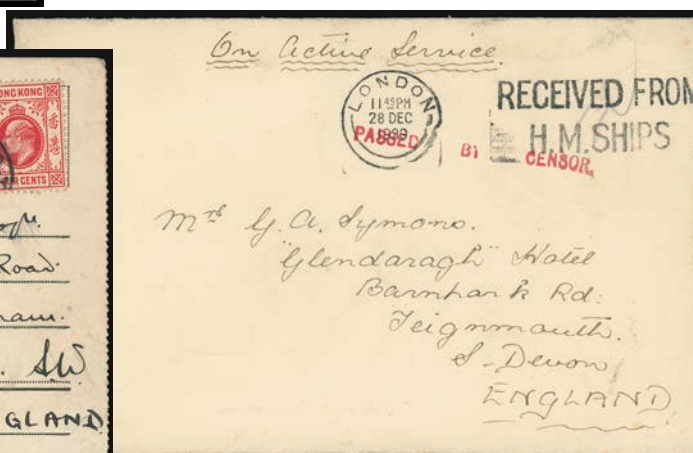 HONG KONG
香港
CENTS
Road
SW
GLAND
On Active Service
LONDON
11 45 PM
28 DEC
1939
PASSED BY CENSOR.
RECEIVED FROM
H.M. SHIPS
Mrs G. A. Symons.
"Glendaragh" Hotel
Barnpark Rd:
Teignmouth.
S. Devon
ENGLAND